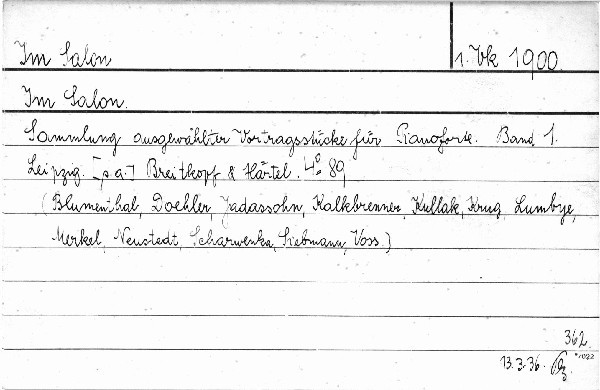 Im Salon
1. Vk 1900.
Im Salon.
Sammlung ausgewählter Vortragsstücke für Pianoforte. Band 1.
Leipzig. [s. a.] Breitkopf & Härtel. 4° 89
(Blumenthal, Doehler, Jadassohn, Kalkbrenner, Kullak, Krug, Lumbye,
Merkel, Neustedt, Scharwenka, Siebmann, Voss.)
362
13.3.36.